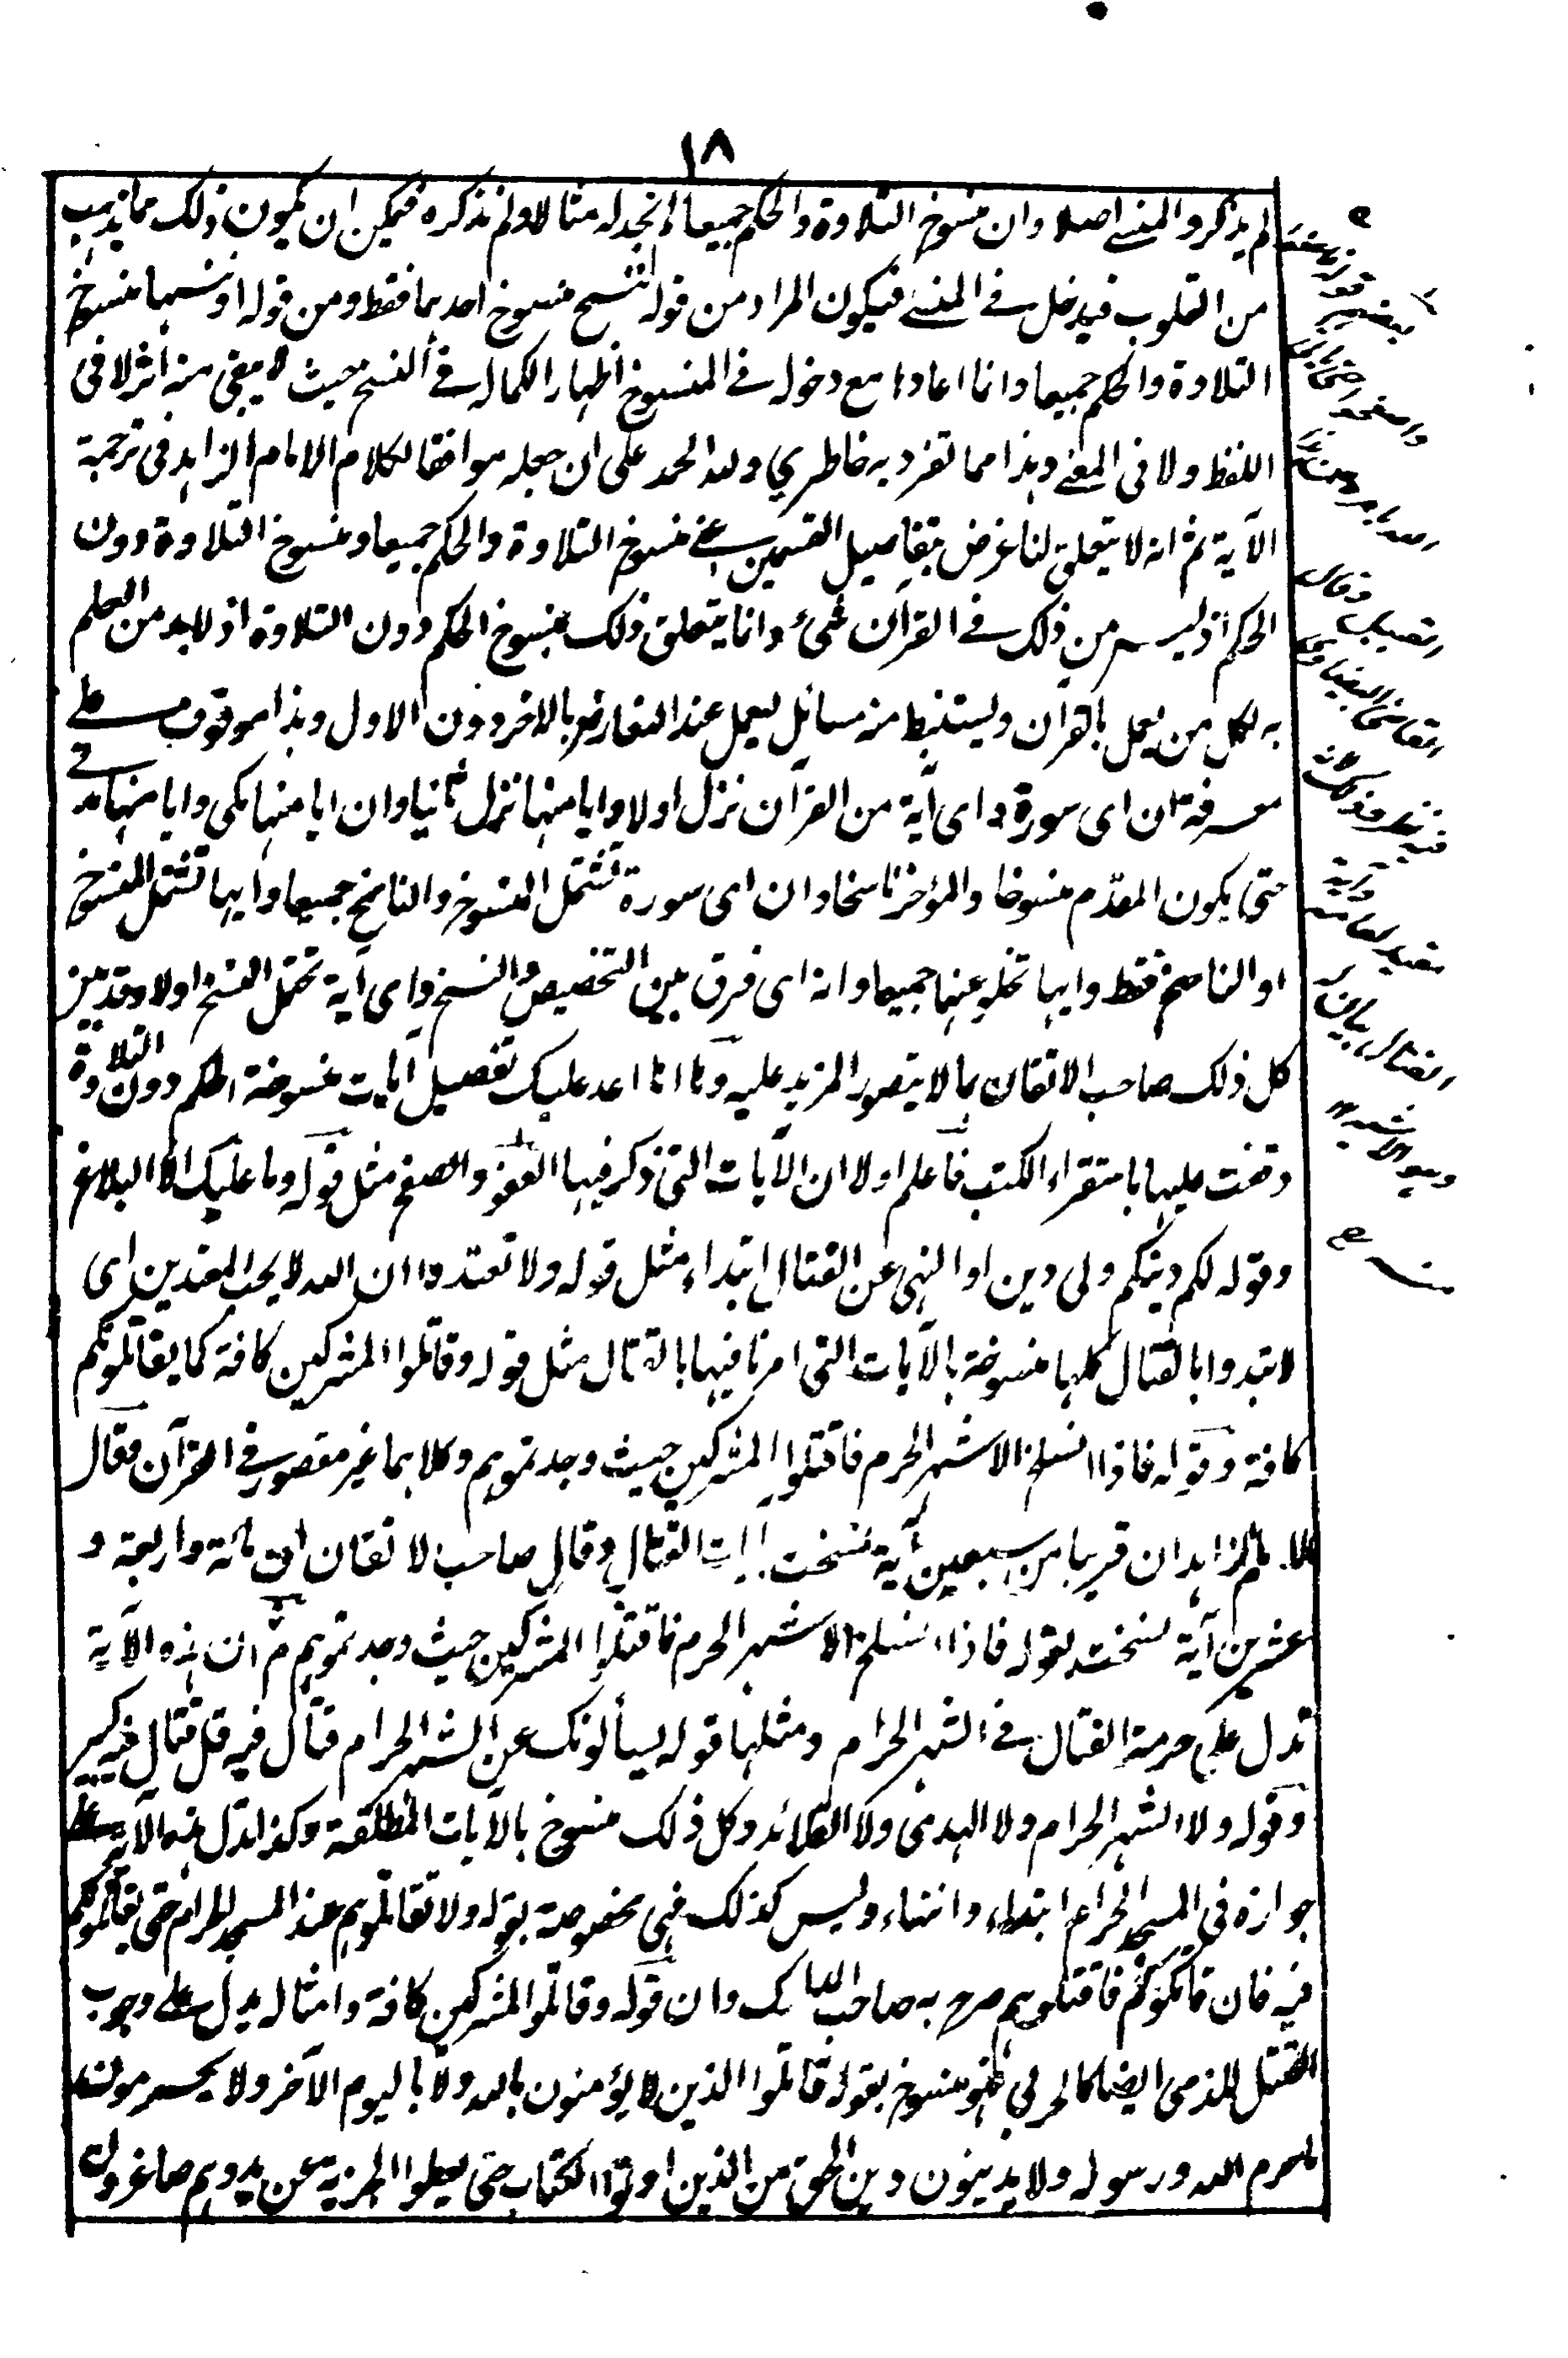 ١٨
لم يذكروا المنسے اصلا وان منسوخ التلاوة والحكم جميعا لم نجد له مثالا ولم نذكره فيمكن ان يكون ذلك مما يذهب
من القلوب فيدخل فے المنسے فيكون المراد من قوله ننسخ منسوخ احدهما فقط ومن قوله او ننسها منسوخ
التلاوة والحكم جميعا وانما اعادها مع دخوله فے المنسوخ اظهار الكماله فے النسخ حيث لا يبقى منه اثر لا فى
اللفظ ولا فى المعنے وهذا مما تفرد به خاطري ولله الحمد على ان جعله موافقا لكلام الامام الزاهد فى ترجمة
الآية ثم انه لا يتعلق لنا غرض بتفاصيل القسمين اعنے منسوخ التلاوة والحكم جميعا ومنسوخ التلاوة دون
الحكم اذ ليس من ذلك فے القرآن شئ وانما يتعلق ذلك بمنسوخ الحكم دون التلاوة اذ لابد من العلم
به لكل من يعمل بالقرآن ويستنبط منه مسائل ليعمل عند التعارض بالاخر دون الاول وهذا موقوف علے
معرفة ان اى سورة واى آية من القرآن نزل اولا وايا منها نزل ثانيا وان ايا منها مكى وايا منها مدنے
حتى يكون المقدم منسوخا والمؤخر ناسخا وان اى سورة تشتمل المنسوخ والناسخ جميعا وايها تشتمل المنسوخ
او الناسخ فقط وايها تخلو عنهما جميعا وانه اى فرق بين التخصيص والنسخ واى آية تحتمل النسخ اولا وقد بين
كل ذلك صاحب الاتقان بما لا يتصور المزيد عليه وها انا اعد عليك تفصيل آيات منسوخة الحكم دون التلاوة
وقفت عليها باستقراء الكتب فاعلم اولا ان الآيات التى ذكر فيها العفو والصفح مثل قوله وما عليك الا البلاغ
وقوله لكم دينكم ولى دين او النهى عن القتال ابتداء مثل قوله ولا تعتدوا ان الله لا يحب المعتدين اى
لا تبدوا بالقتال كلها منسوخة بالآيات التى امرنا فيها بالقتال مثل قوله وقاتلوا المشركين كافة كما يقاتلونكم
كافة وقوله فاذا انسلخ الاشهر الحرم فاقتلوا المشركين حيث وجدتموهم وكلاهما غير مقصور فے القرآن فقال
الامام الزاهد ان قريبا من سبعين آية نسخت بآيات القتال وقال صاحب الاتقان ان مائة واربعة و
عشرين آية نسخت بقوله فاذا انسلخ الاشهر الحرم فاقتلوا المشركين حيث وجدتموهم ثم ان هذه الآية
تدل على حرمة القتال فے الشهر الحرام ومثلها قوله يسألونك عن الشهر الحرام قتال فيه قل قتال فيه كبير
وقوله ولا الشهر الحرام ولا الهدى ولا القلائد وكل ذلك منسوخ بالآيات المطلقة وكذا تدل هذه الآية علے
جوازه فى المسجد الحرام ابتداء وانتهاء وليس كذلك فهى مخصوصة بقوله ولا تقاتلوهم عند المسجد الحرام حتى يقاتلوكم
فيه فان قاتلوكم فاقتلوهم صرح به صاحب المدارك وان قوله وقاتلوا المشركين كافة وامثاله يدل علے وجوب
القتل للذمى ايضا كالحربى فهو منسوخ بقوله قاتلوا الذين لا يؤمنون بالله ولا باليوم الآخر ولا يحرمون ما
حرم الله ورسوله ولا يدينون دين الحق من الذين اوتوا الكتاب حتى يعطوا الجزية عن يد وهم صاغرون